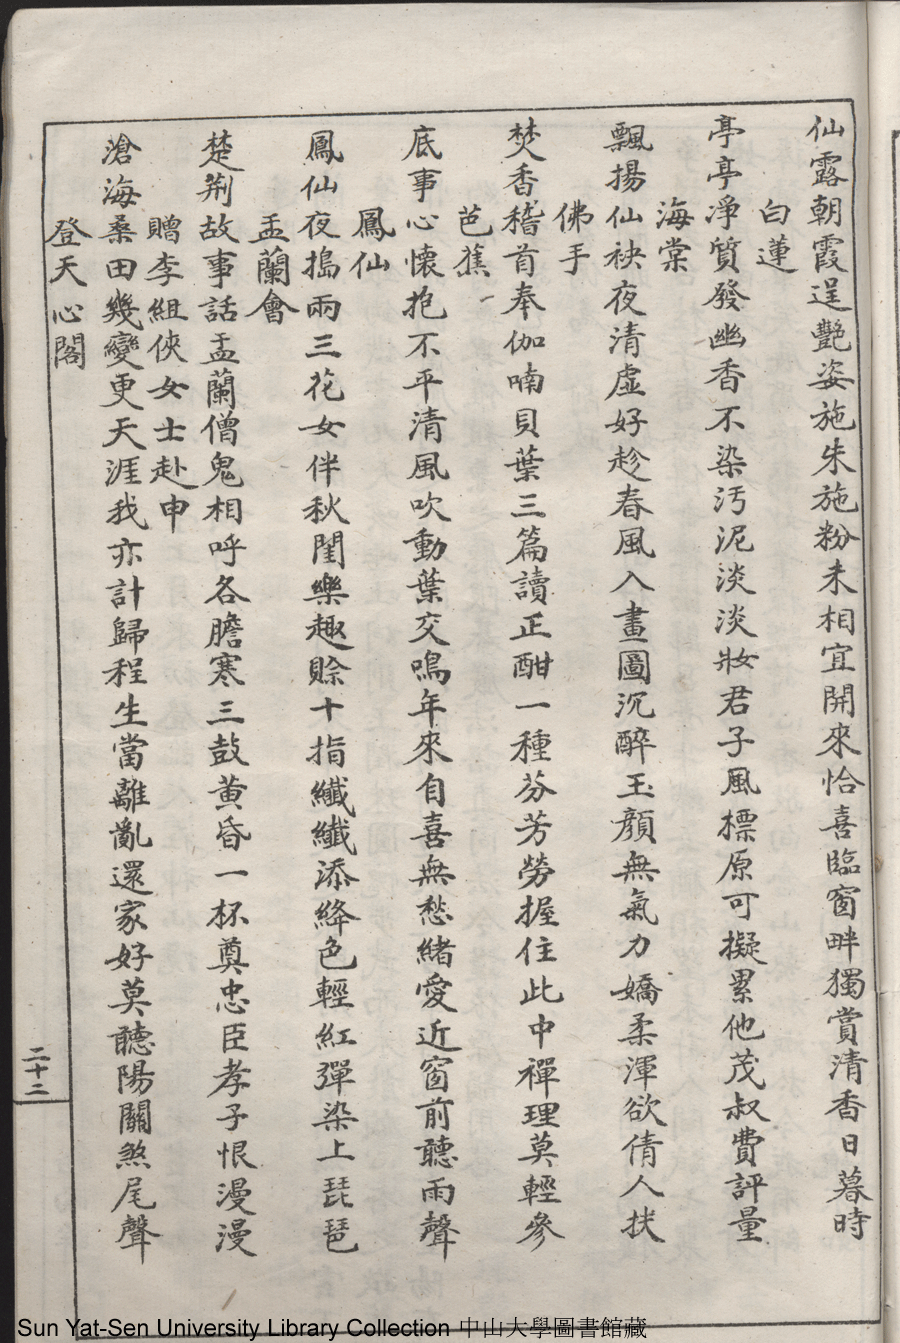 仙露朝霞逞艷姿施朱施粉未相宜開來恰喜臨窗畔獨賞清香日暮時
白蓮
亭亭淨質發幽香不染污泥淡淡妝君子風標原可擬累他茂叔費評量
海棠
飄揚仙袂夜清虛好趁春風入畫圖沉醉玉顏無氣力嬌柔渾欲倩人扶
佛手
焚香稽首奉伽喃貝葉三篇讀正酣一種芬芳勞握住此中禪理莫輕參
芭蕉
底事心懷抱不平清風吹動葉交鳴年來自喜無愁緒愛近窗前聽雨聲
鳳仙
鳳仙夜搗兩三花女伴秋閨樂趣賒十指纖纖添絳色輕紅彈染上琵琶
盂蘭會
楚荊故事話盂蘭僧鬼相呼各膽寒三鼓黃昏一杯奠忠臣孝子恨漫漫
贈李組俠女士赴申
滄海桑田幾變更天涯我亦計歸程生當離亂還家好莫聽陽關煞尾聲
登天心閣
二十二
Sun Yat-Sen University Library Collection 中山大學圖書館藏